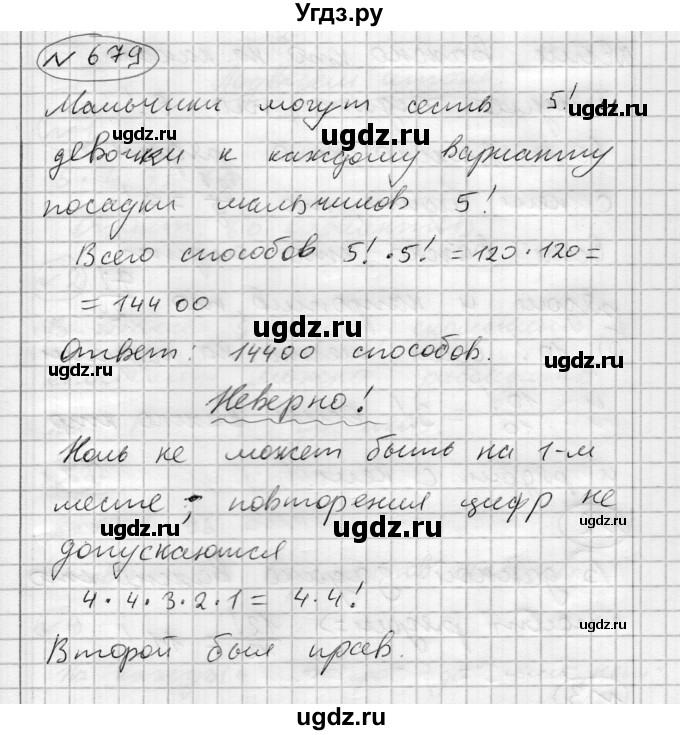 Угдз.ру
N 679
Мальчики могут сесть 5!
ugdz.ru
ugdz.ru
ugdz.ru
девочки к каждому варианту
посадки мальчиков 5!
Всего способов 5! · 5! = 120 · 120 =
= 14400
ugdz.ru
Ответ: 14400 способов.
ugdz.ru
ugdz.ru
Неверно!
Ноль не может быть на 1-м
месте; повторения цифр не
ugdz.ru
ugdz.ru
ugdz.ru
допускаются
4 · 4 · 3 · 2 · 1 = 4 · 4!
ugdz.ru
Второй был прав.
ugdz.ru
ugdz.ru
ugdz.ru